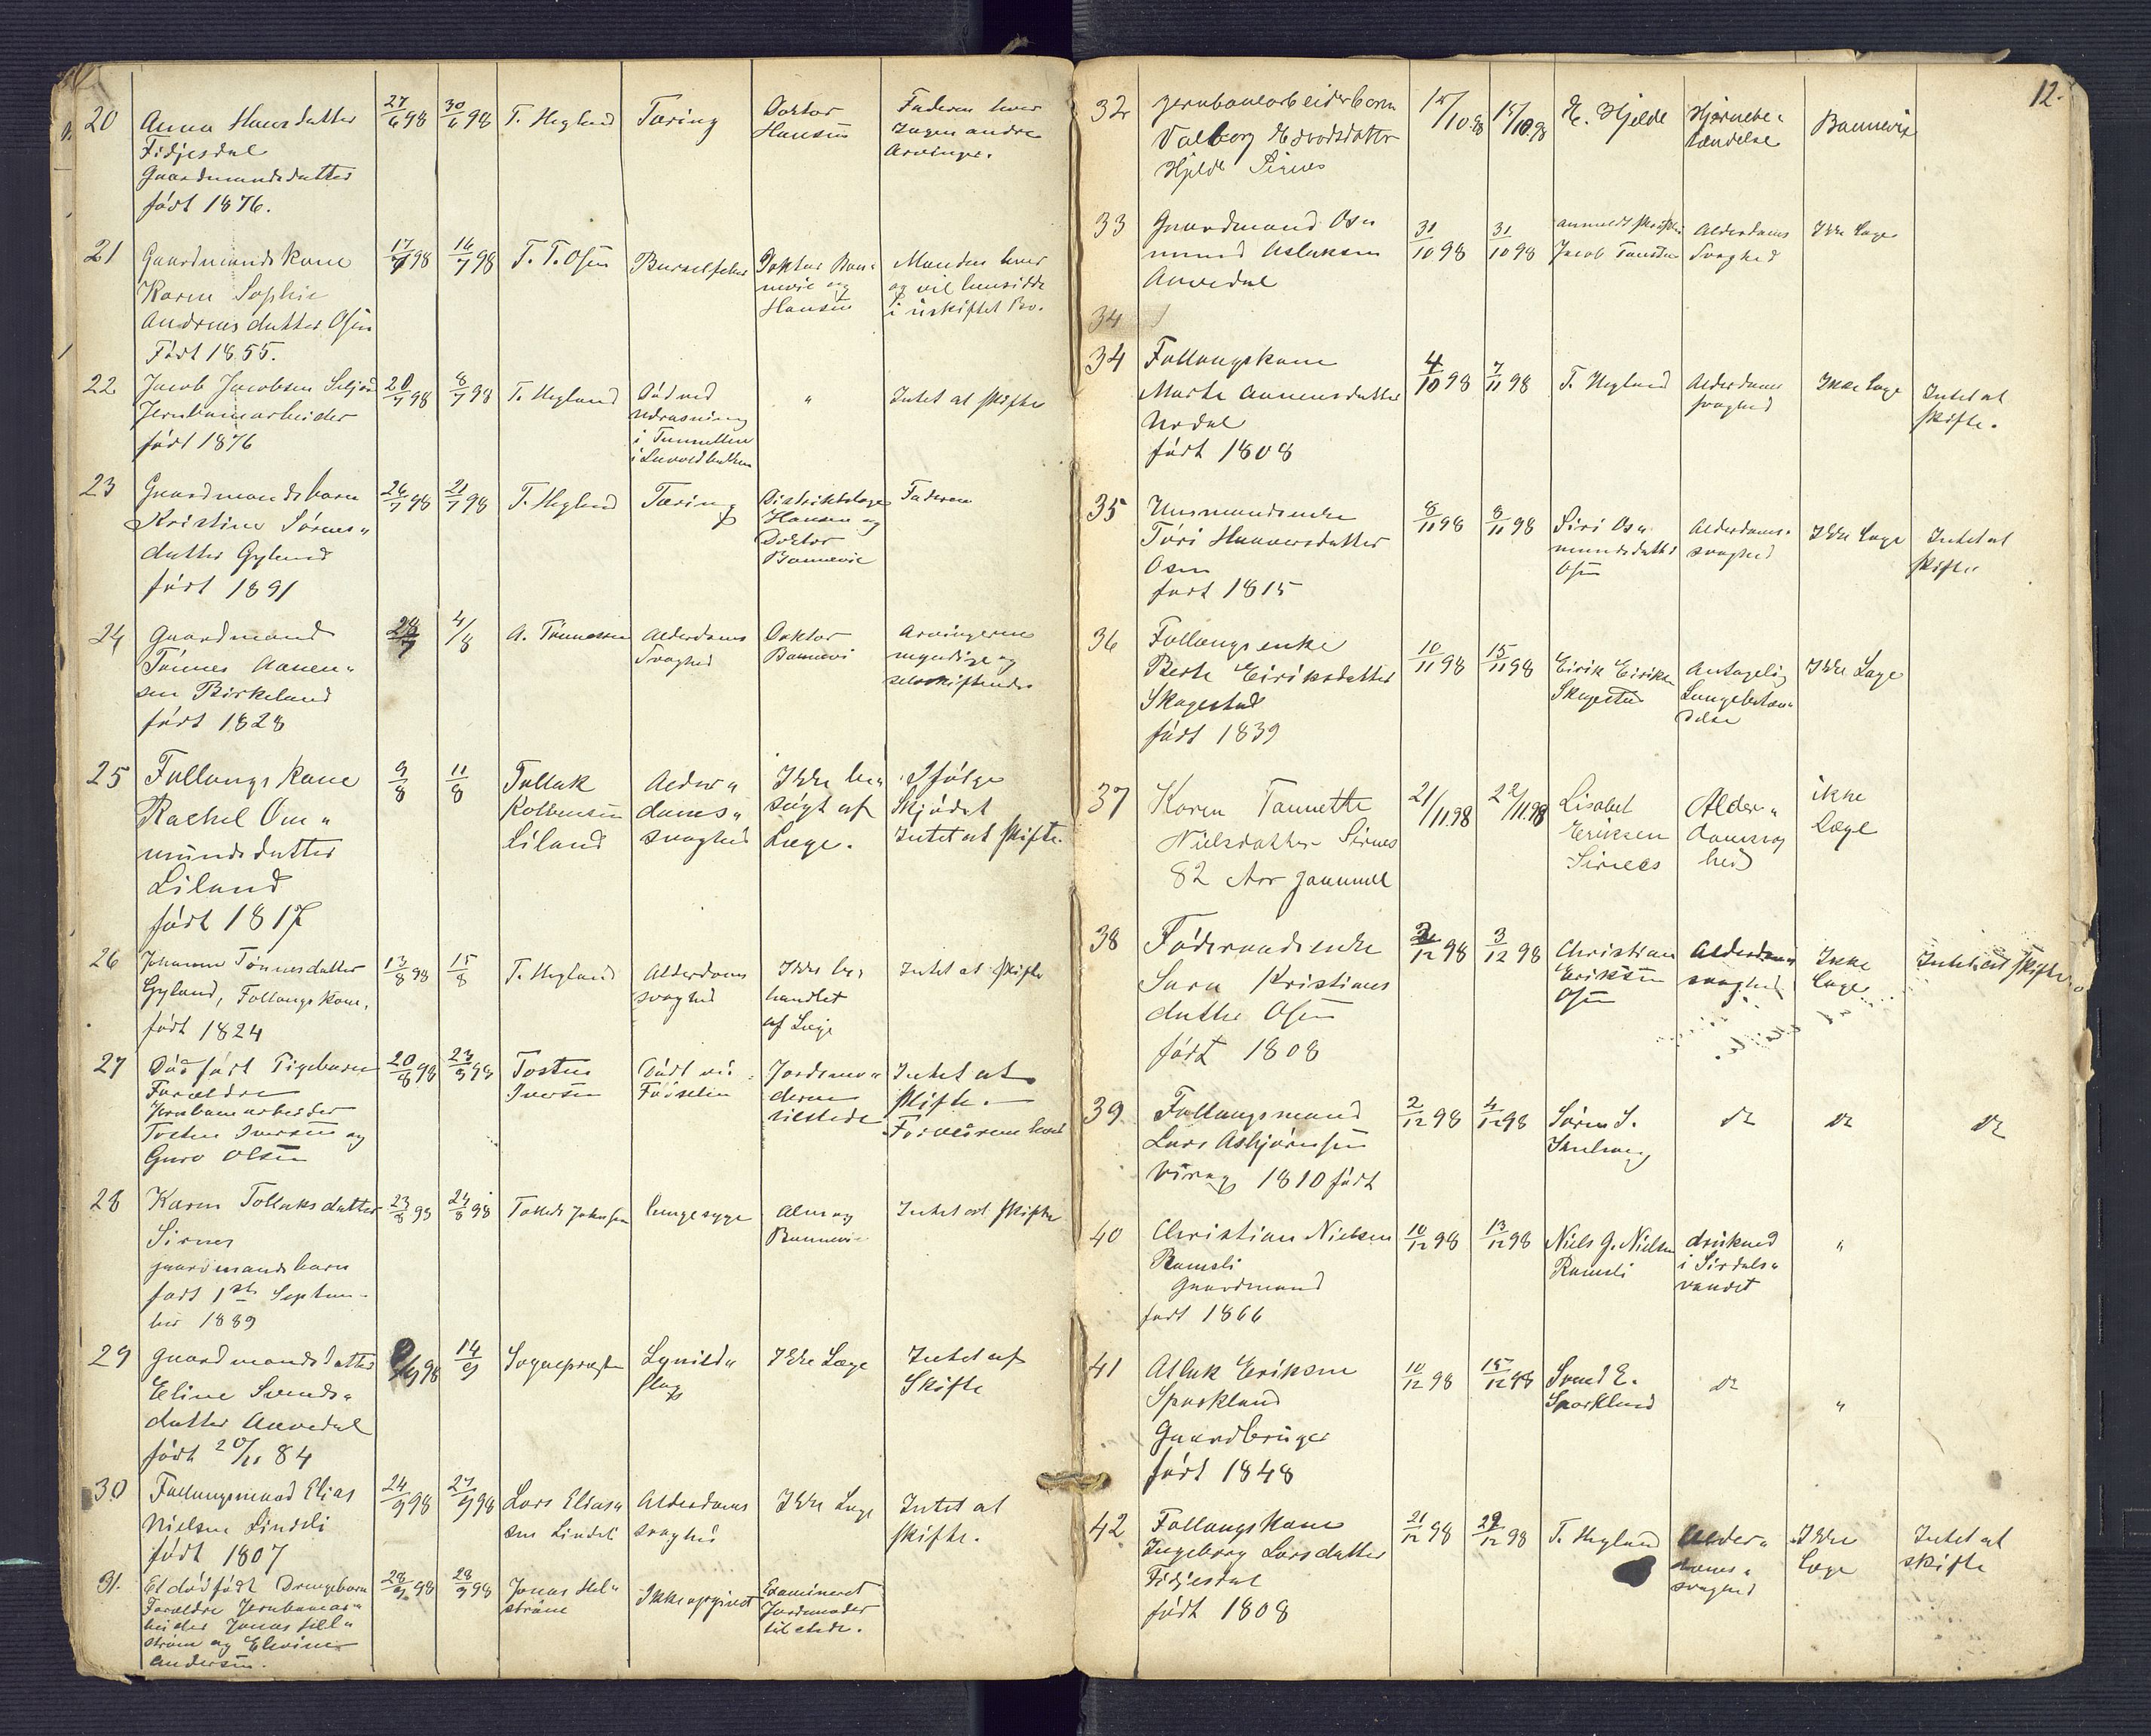 20
Anna Hansdatter
Fidjesdal
Gaardmandsdatter
födt 1876.
27/6 98
30/6 98
T. Hegland
Tæring
Doktor
Hansen
Faderen lever
Ingen andre
Arvinger.
21
Gaardmandskone
Karen Sophie
Andreasdatter Osen
Födt 1855.
98
16/7 98
T. T. Osen
Barselfeber
Doktor Ban„
nevie og
Hansen
Manden lever
og vil hensidde
i uskiftet Bo.
22
Jacob Jacobsen
Jernbanearbeider
födt 1876
98
8/7 98
T. Hegland
Död ved
udrasning
i Tunnellen
"
Intet at skifte
23
Gaardmandsbarn
Kristine Sörens„
datter Gyland
født 1891
98
21/7 98
T. Hegland
Tæring
Distriktslæge
Hansen og
Doktor
Bannevie
Faderen
24
Gaardmand
Tönnes Aanen„
sen Birkeland
födt 1828
4/8
A. Tönnessen
Alderdoms
Svaghed
Doktor
Bannevi
Arvingerne
myndige og
selvskiftende
25
Follougskone
Rachel Om„
mundsdatter
Liland
födt 1817
9/8
11/8
Tollak
Kolbensen
Liland
Alder„
doms„
svaghed
Ikke be„
søgt af
Læge.
Ifölge
Skjödet
Intet at skifte.
26
Johanne Tönnesdatter
Gyland, Follougskone,
födt 1824
13/8 98
15/8
T. Hegland
Alderdoms
svaghed
Ikke be„
handlet
af Læge
Intet at skifte
27
Dödfödt Pigebarn
Forældre
Jernbanearbeider
Tosten Iversen og
Guro Olsen
20/8 98
98
Tosten
Iversen
Födt ved
Födselen
Jordemo„
deren
tilstede
Intet at
skifte. —
Forældrene lever
28
Karen Tollaksdatter
Sirnes
gaardmandsbarn
født 1ste Septem-
ber 1889
23/8 98
24/8 98
Tollak Johnsen
Lungesyge
Alm og
Bannevie
Intet at skifte
29
Gaardmandsdatter
Eline Svends„
datter Aavedal
født 84
98
14/9
Sognepræsten
Lynild„
slag
Ikke Læge
Intet at
Skifte
30
Follougsmand Elias
Nielsen Lindeli
födt 1807
24/9 98
27/9 98
Lars Elias„
sen Lindeli
Alderdoms
svaghed
Ikke Læge
Intet at
skifte.
31.
Et dödfödt Drengebarn
Forældre Jernbanear„
beider Jonas Hell„
ström og Elevine
Andersen.
28/9 98
28/9 98
Jonas Hel„
ström
Ikke opgivet
Examineret
Jordemoder
tilstede.
12.
32
Jernbanearbeiderbarn
Valborg Edvardsdatter
Hjelde Sirnes
E. Hjelde
Hjernebe„
tændelse
Bannevie
33
Gaardmand Os„
mund Aslaksen
Aavedal
31/10 98
31/10 98
anmeldt skriftlig
Jacob
Alderdoms
Svaghed
Ikke Læge
34
34
Follougskone
Marte Aanensdatter
Urdal
födt 1808
4/10 98
7/11 98
T. Hegland
Alderdoms
svaghed
Ikke Læge
Intet at
skifte.
35
Huusmandsenke
Töri Haaversdatter
Osen
født 1815
8/11 98
8/11 98
Siri Os„
mundsdatter
Osen
Alderdoms„
svaghed
Ikke Læge
Intet at
skifte
36
Follougsenke
Berte Eiriksdatter
Skagestad
födt 1839
10/11 98
15/11 98
Eirik Eiriksen
Skagestad
Antagelig
Lungebetæn„
delse
Ikke Læge
37
Karen Tannette
Nielsdatter Sirnes
82 Aar gammel
21/11.98
22/11.98
Lisabet
Eriksen
Sirnees
Alder„
domsvag
hed
ikke
Læge
38
Föderaadsenke
Sara Kristians
datter Osen
födt 1808
98
3/12 98
Christian
Eriksen
Osen
Alderdoms
svaghed
Ikke
Læge
Intet at skifte
39
Follougsmand
Lars Asbjörnsen
Virag 1810 födt
2/12 98
4/12 98
Sören S.
do
do
do
40
Christian Nielsen
Ramsli
Gaardmand
født 1866
10/12 98
13/12 98
Niels G. Nielsen
Ramsli
druknet
i Sirdals„
vandet
"
41
Atlak Eriksen
Sparkland
Gaardbruger
födt 1848
10/12 98
15/12 98
Svend E.
Sparkland
do
"
42
Follougskone
Ingeborg Larsdatter
Fidjesdal
födt 1808
21/12 98
29/12 98
T. Hegland
Alder„
doms„
svaghed
Ikke
Læge
Intet at
skifte